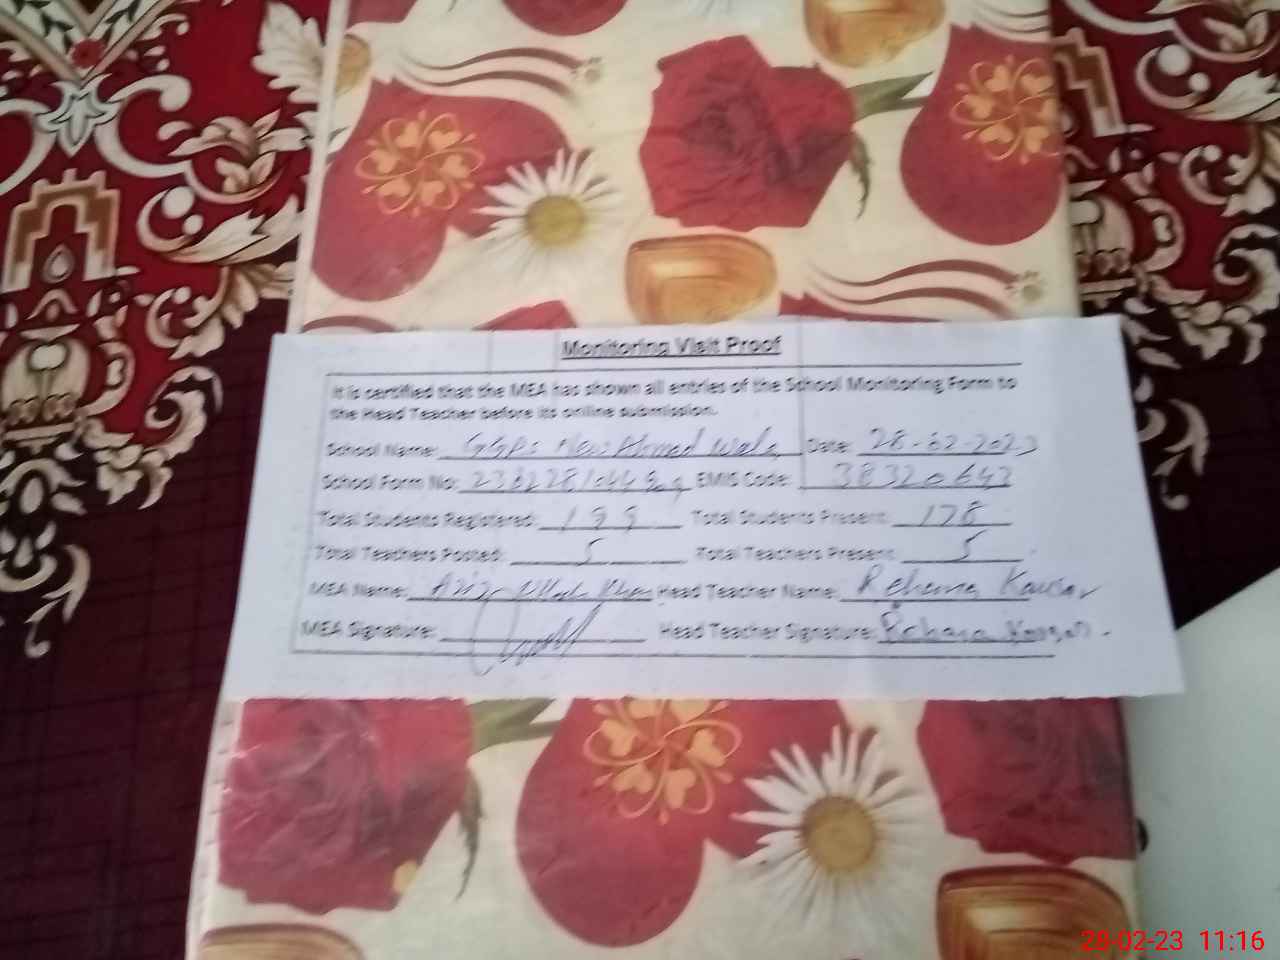 Monitoring Visit Proof
It is certified that the MEA has shown all entries of the School Monitoring Form to
the Head Teacher before its online submission.
School Name: GGPS New Ahmed Wala Date: 28-02-2023
School Form No: EMIS Code: 38320642
Total Students Registered: 199 Total Students Present: 178
Total Teachers Posted: 5 Total Teachers Present: 5
MEA Name: Aziz Ullah Khan Head Teacher Name: Rehana Kausar
MEA Signature: Head Teacher Signature: Rehana Kausar.
28-02-23 11:16